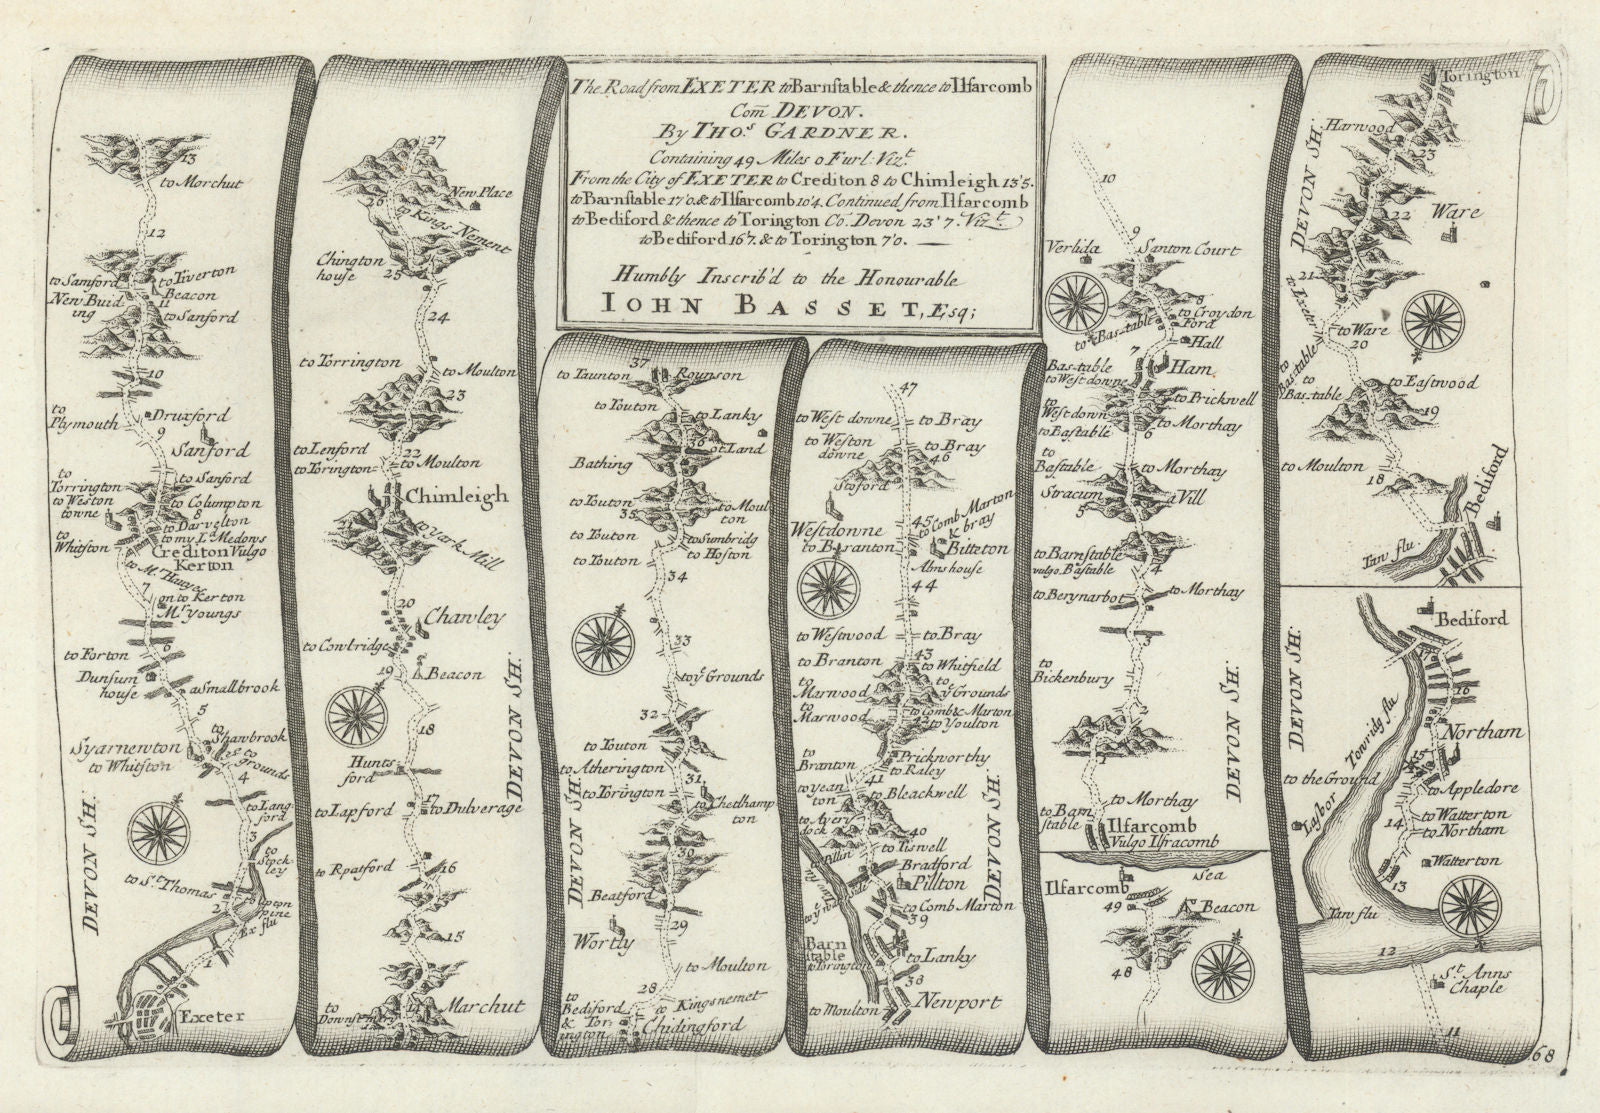 The Road from EXETER to Barnstable & thence to Ilfarcomb
Com̄ DEVON.
By THO.s GARDNER.
Containing 49 Miles 0 Furl: Viz.t
From the City of EXETER to Crediton 8 to Chimleigh 13'5.
to Barnstable 17'0. & to Ilfarcomb 10'4. Continued from Ilfarcomb
to Bediford & thence to Torington Co. Devon 23'7. Viz.t
to Bediford 16'7. & to Torington 7'0.
Humbly Inscrib'd to the Honourable
IOHN BASSET, Esq;
13
to Morchut
12
to Samford
to Tiverton
Beacon
New Buid
ing
11
to Sanford
10
to
Plymouth
Druxford
9
Sanford
to
Torrington
to Sanford
to Weston
towne
to Columpton
8
to Darvelton
to
Whitston
to my L.d Medows
Crediton Vulgo
Kerton
to M.r Harves
7
on to Kerton
M.r Youngs
6
to Forton
Dunsum
house
a Smallbrook
5
to
Shawbrook
Syarnewton
to Whitston
to
Grounds
4
to Lang
ford
3
to
Stock
ley
to S.t Thomas
2
to Upton
pine
Ex flu
DEVON SH.
1
Exeter
27
New Place
26
to Kings Nement
Chington
house
25
24
to Torrington
to Moulton
23
to Lenford
22
to Torington
to Moulton
Chimleigh
21
to York Mill
20
Chawley
to Cowbridge
19
Beacon
DEVON SH.
18
Hunts
ford
17
to Lapford
to Dulverage
to Rpatford
16
15
to
Marchut
14
37
to Taunton
Rounson
to Touton
to Lanky
36
ot Land
Bathing
to Touton
to Moul
ton
35
to Touton
to Sumbridg
to Hoston
to Touton
34
33
to y.e Grounds
32
to Touton
to Atherington
31
to Torington
to Chetlhamp
ton
DEVON SH.
30
Beatford
29
Wortly
to Moulton
28
to
Bediford
& Tor-
ington
to Kingsnemet
Chidingford
47
to West downe
to Bray
to Weston
downe
to Bray
46
Stoford
45
to Comb Marton
& bray
Westdowne
to Branton
Bitteton
Almshouse
44
to Westwood
to Bray
43
to Branton
to Whitfield
to
Marwood
to
y.e Grounds
to
Marwood
to Comb & Marton
42
to Youlton
to
Branton
Prickworthy
to Raley
41
to yean
ton
to Bleackwell
to Avery
dock
40
to Tiswell
to Pillin
Bradford
Pillton
DEVON SH.
Taw flu
to Comb Marton
39
Barn
stable
to Torington
to Lanky
38
to Moulton
Newport
10
9
Verlida
Santon Court
8
to Croydon
Ford
to Bas-table
Hall
7
Bas-table
to West downe
Ham
to Prickwell
to
West down
to Bastable
to Morthay
6
to
Bastable
to Morthay
Stracum
a Vill
5
to Barnstable
vulgo Bastable
4
to Berynarbot
to Morthay
3
to
Bickenbury
DEVON SH.
2
1
to Barn
stable
to Morthay
Ilfarcomb
Vulgo Ilfracomb
Sea
Ilfarcomb
49
Beacon
48
Torington
Harwood
23
DEVON SH.
22
Ware
21
to Exeter
to Ware
20
to
Bas-table
to
Bas-table
to Eastwood
19
to Moulton
18
Bediford
Taw flu.
Bediford
17
16
DEVON SH.
Towridg flu
Northam
15
to the Ground
to Appledore
Lasbor
14
to Watterton
to Northam
Watterton
13
Taw flu
12
S.t Anns
Chaple
11
68